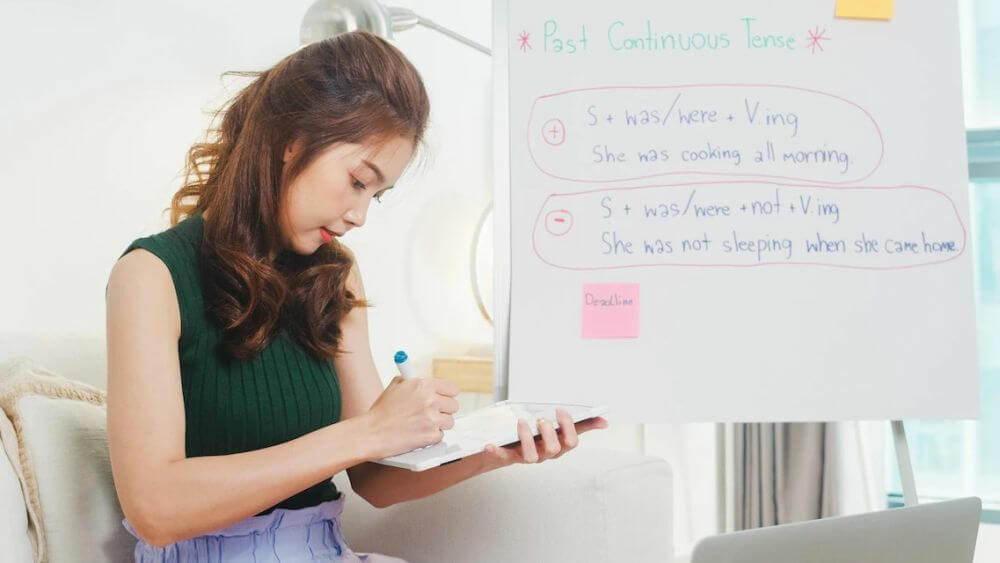 * Past Continuous Tense *
+ S + was/were + V.ing
She was cooking all morning.
- S + was/were +not + V.ing
She was not sleeping when she came home.
Deadline